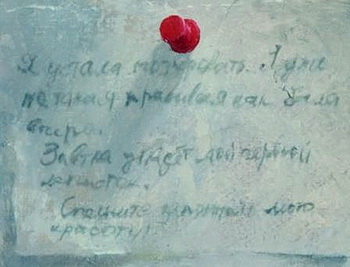 Я устала позировать. Я уже
не такая красивая как была
вчера.
Завтра упадёт мой первый
лепесток.
Спешите мою
красоту!